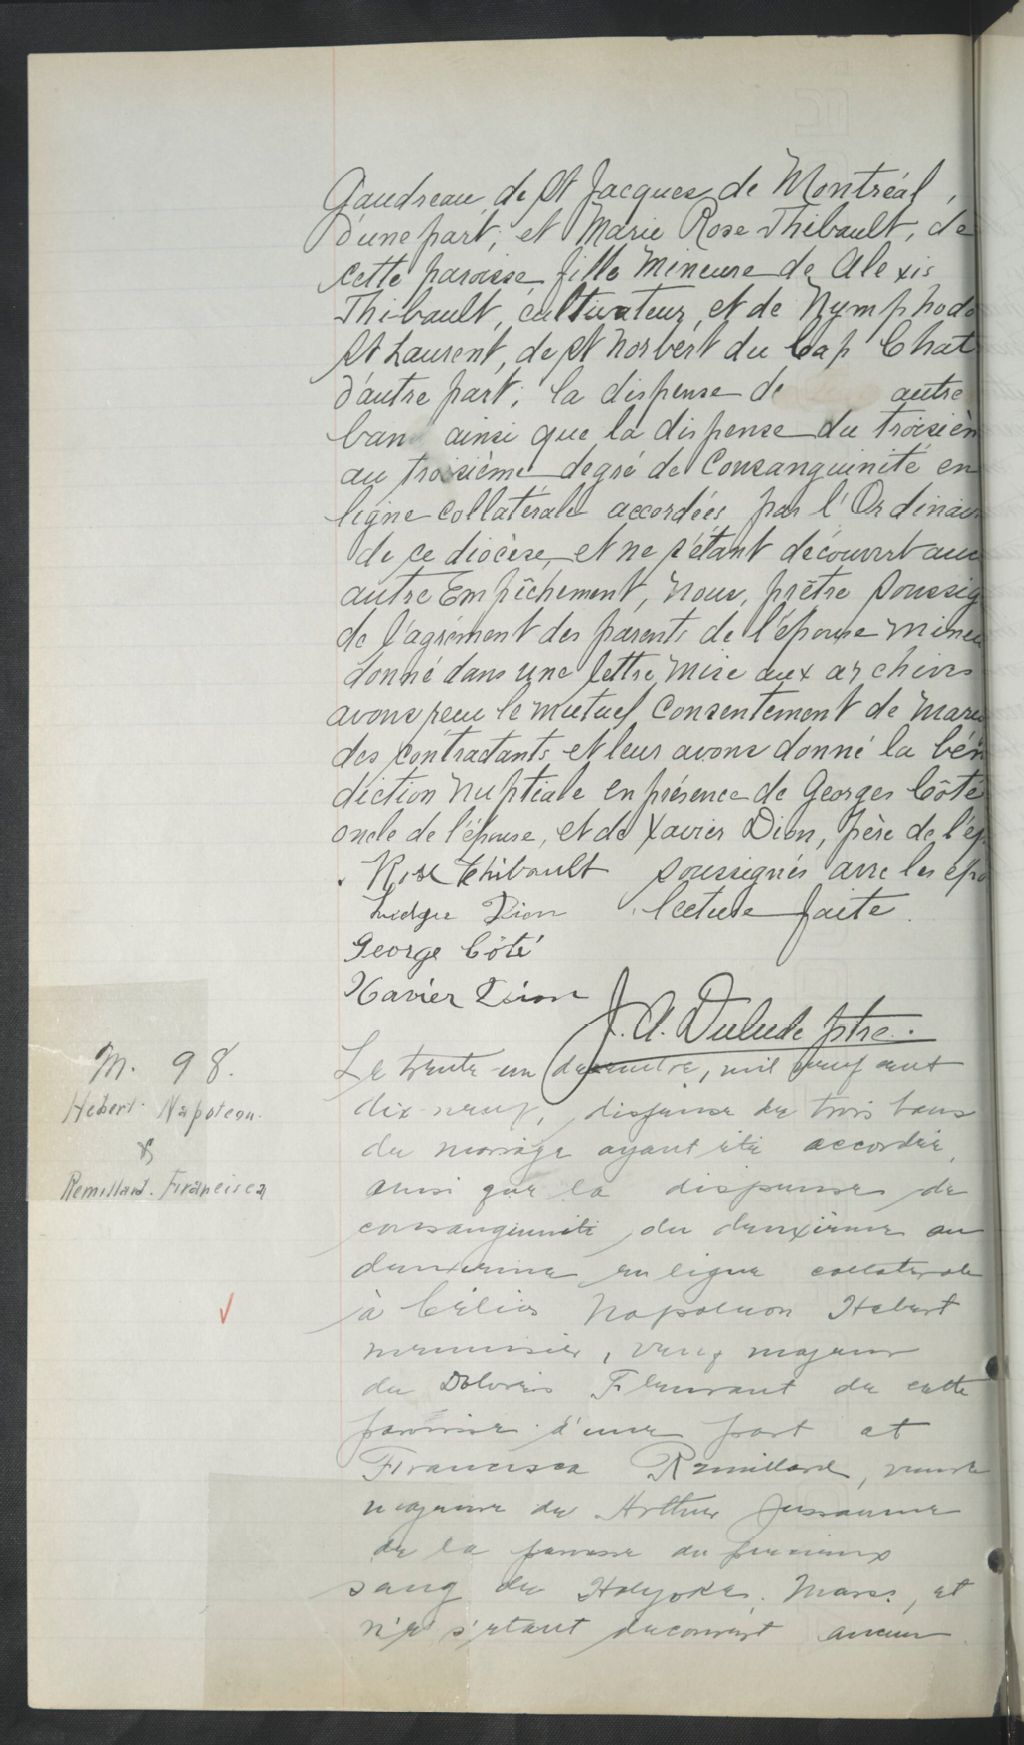 Gaudreau, de St Jacques de Montréal,
d'une part; et Marie Rose Thibault, de
cette paroisse, fille mineure de Alexis
Thibault, cultivateur, et de Nymphodo
St Laurent, de St Norbert du Cap Chat
d'autre part; la dispense de autre
ban ainsi que la dispense du troisièm
au troisième degré de Consanguinité en
ligne collatérale accordées par l'Ordinair
de ce diocèse, et ne s'étant découvert auc
autre Empêchement, Nous, prêtre soussig
de l'agrément des parents de l'épouse mineu
donné dans une lettre mise aux archives
avons reçu le mutuel Consentement de mari
des contractants et leur avons donné la bén
diction nuptiale en présence de Georges Côté
oncle de l'épouse, et de Xavier Dion, père de l'ép
Rose Thibault soussignés avec les épo
Dion lecture faite.
George Côté
Xavier Dion
J. A. Dulude ptre.
M. 98.
Hébert. Napoléon.
&
Remillard. Francisca
Le trente-un décembre, mil neuf cent
dix-neuf, dispense de trois bans
de mariage ayant été accordée,
ainsi que la dispense de
consanguinité du deuxième au
deuxième en ligne collatérale
à Napoléon Hebert
menuisier, veuf majeur
de Doloris Fleurant de cette
paroisse d'une part et
Francisca Remillard, veuve
majeure de Arthur Jussaume
de la paroisse du précieux
sang de Holyoke. Mass., et
ne s'étant découvert aucun